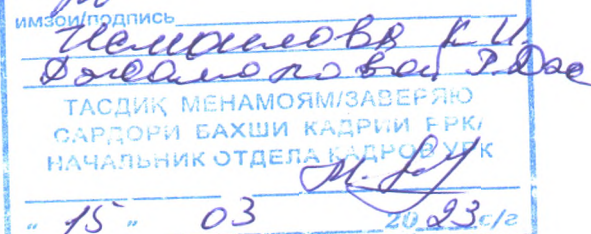 имзои/подпись
Исмаилова К И
Джамоловой Р.Дж
ТАСДИҚ МЕНАМОЯМ/ЗАВЕРЯЮ
САРДОРИ БАХШИ КАДРИИ РРК/
НАЧАЛЬНИК ОТДЕЛА КАДРОВ УРК
" 15 " 03 2023 с/г